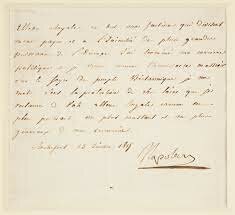 Altesse Royale, en but aux factions qui divisent
mon pays et à l'inimitié des plus grandes
puissances de l'Europe j'ai terminé ma carrière
politique et je viens comme Themistocle m'asseoir
sur le foyer du peuple Britannique je me
mets sous la protection de ses loix que je
reclame de V. A. Royale comme du
plus puissant du plus constant et du plus
généreux de mes ennemis.
Rochefort 13 1815
Napoleon